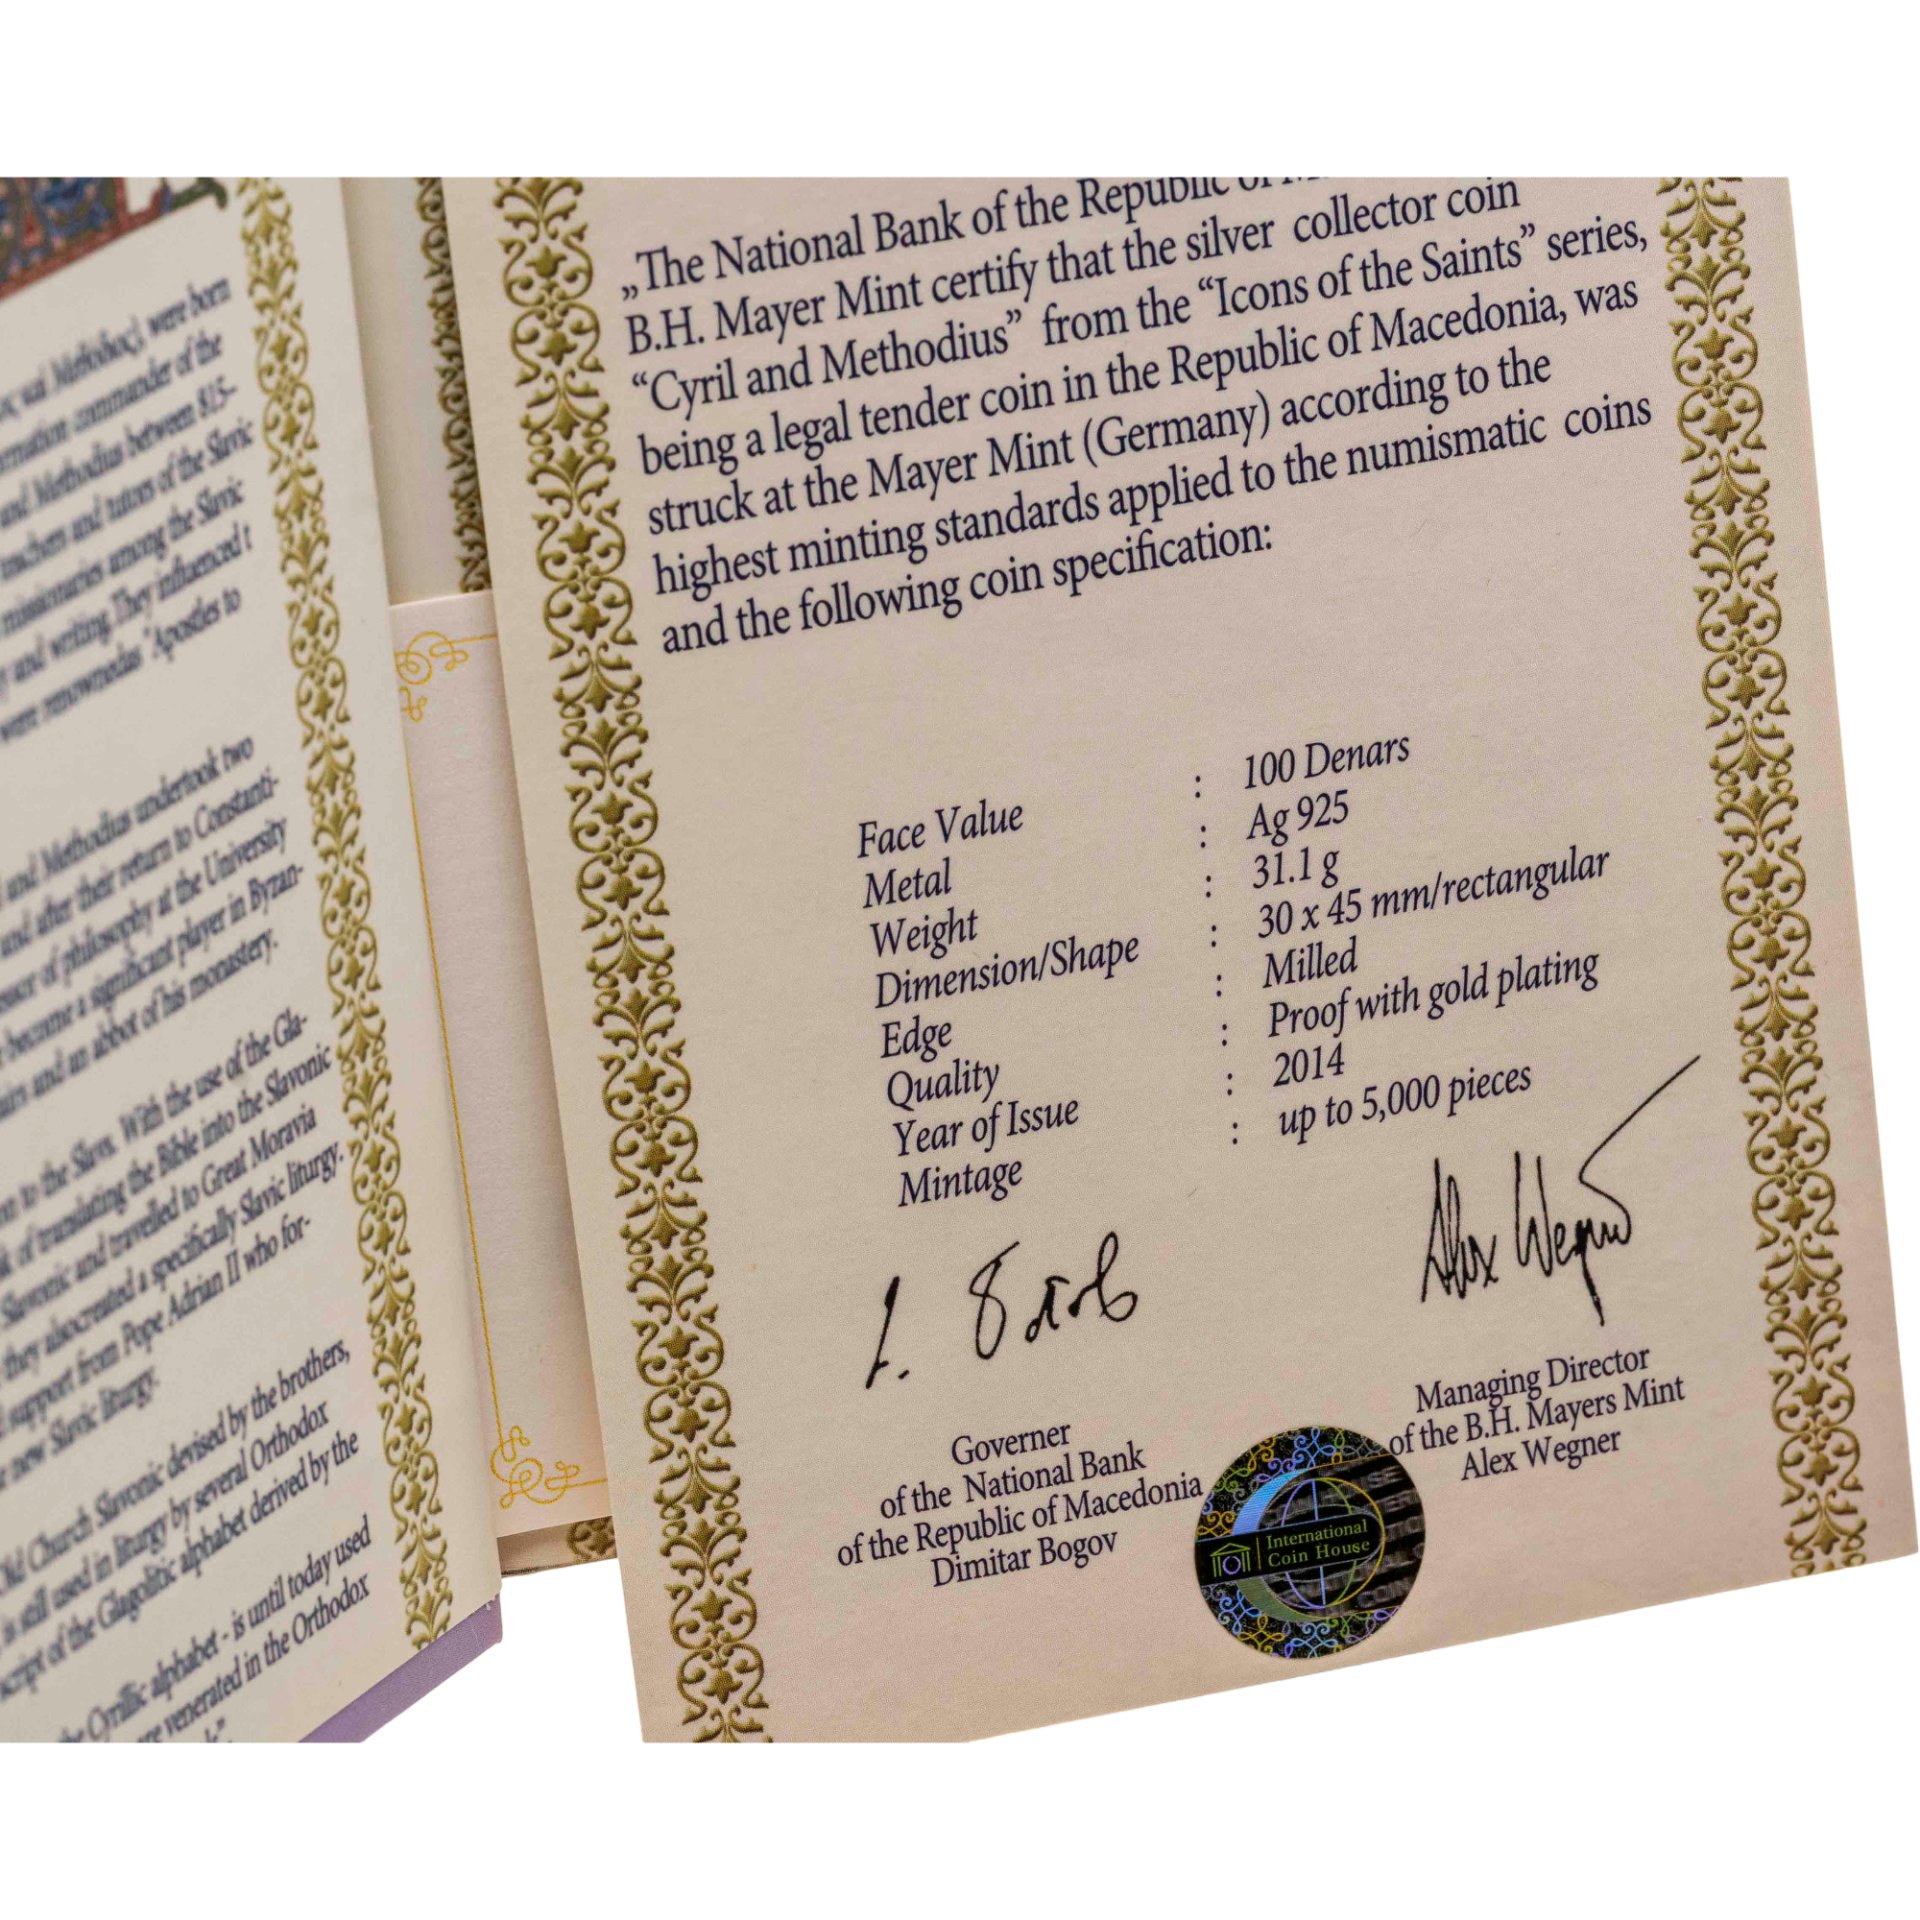 were born
rmation commander of the
and Methodius between 815-
teachers and tutors of the Slavic
missionaries among the Slavic
and writing. They influenced t
were renownedas "Apostles to
and Methodius undertook two
and after their return to Constanti-
of philosophy at the University
become a significant player in Byzan-
and an abbot of his monastery.
to the Slavs. With the use of the Gla-
of translating the Bible into the Slavonic
Slavonic and travelled to Great Moravia
they alsocreated a specifically Slavic liturgy.
support from Pope Adrian II who for-
new Slavic liturgy.
Old Church Slavonic devised by the brothers,
is still used in liturgy by several Orthodox
script of the Glagolitic alphabet derived by the
the Cyrillic alphabet - is until today used
venerated in the Orthodox
„The National Bank of the Republic of
B.H. Mayer Mint certify that the silver collector coin
“Cyril and Methodius” from the “Icons of the Saints” series,
being a legal tender coin in the Republic of Macedonia, was
struck at the Mayer Mint (Germany) according to the
highest minting standards applied to the numismatic coins
and the following coin specification:
Face Value : 100 Denars
Metal : Ag 925
Weight : 31.1 g
Dimension/Shape : 30 x 45 mm/rectangular
Edge : Milled
Quality : Proof with gold plating
Year of Issue : 2014
Mintage : up to 5,000 pieces
Alex Wegner
Governer
of the National Bank
of the Republic of Macedonia
Dimitar Bogov
Managing Director
of the B.H. Mayers Mint
Alex Wegner
International
Coin House